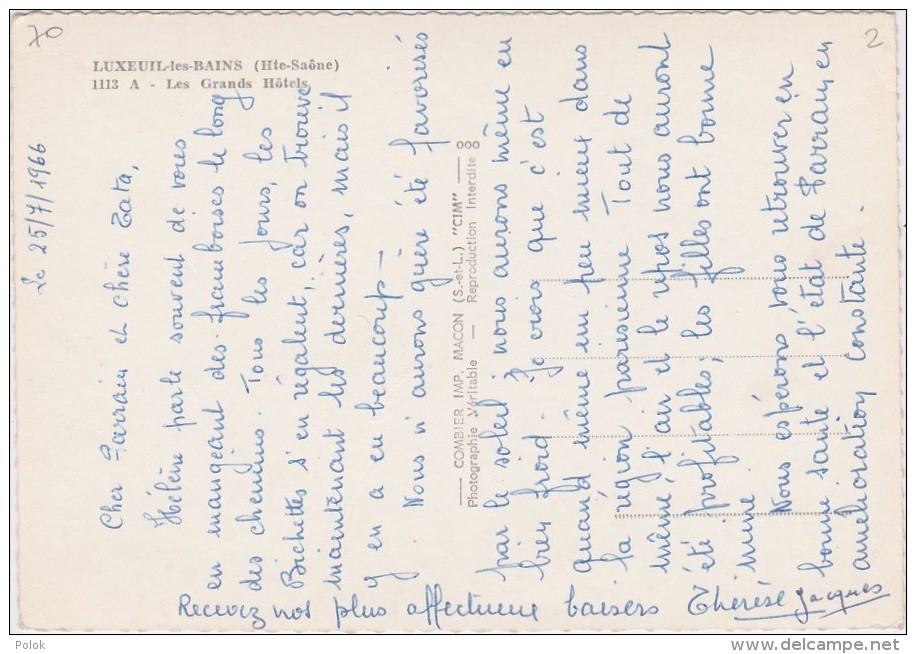 70
2
LUXEUIL-les-BAINS (Hte-Saône)
1113 A - Les Grands Hôtels
Le 25/7/1966
Cher Parrain et chère Tata,
Hélène parle souvent de vous
en mangeant des framboises le long
des chemins. Tous les jours, les
Bichettes s'en régalent, car on trouve
maintenant les dernières, mais il
y en a eu beaucoup -
Nous n'aurons guère été favorisés
par le soleil, nous aurons même eu
bien froid. Je crois que c'est
quand même un peu mieux dans
la région parisienne. Tout de
même l'air et le repos nous auront
été profitables; les filles ont bonne
mine
Nous espérons vous retrouver en
bonne santé et l'état de Parrain en
amélioration constante.
Recevez nos plus affectueux baisers Thérèse Jacques
COMBIER IMP. MACON (S.-et-L.) "CIM"
Photographie Véritable — Reproduction Interdite
Polok
www.delcampe.net